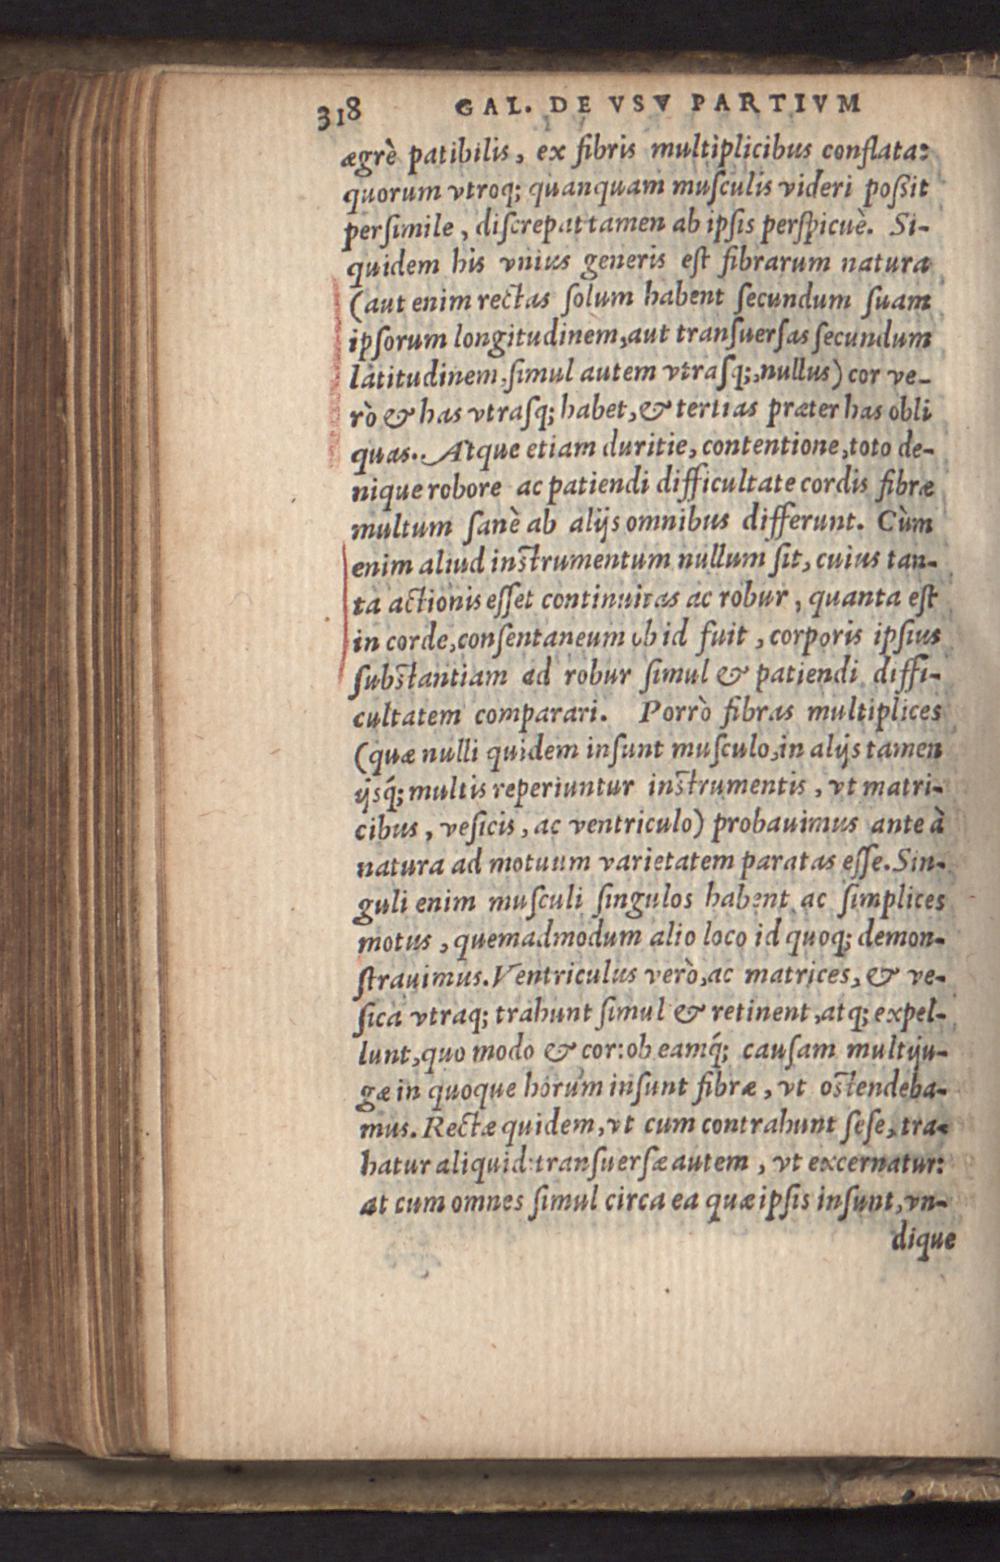 318 GAL. DE VSV PARTIVM
ægrè patibilis, ex fibris multiplicibus conflata:
quorum vtroq; quanquam muſculis videri poßit
perſimile, diſcrepat tamen ab ipſis perſpicuè. Si-
quidem his vnius generis eſt fibrarum natura
(aut enim rectas ſolum habent ſecundum ſuam
ipſorum longitudinem, aut tranſuerſas ſecundum
latitudinem, ſimul autem vtraſq;, nullus) cor ve-
rò & has vtraſq; habet, & tertias præter has obli
quas. Atque etiam duritie, contentione, toto de-
nique robore ac patiendi difficultate cordis fibræ
multum ſanè ab alijs omnibus differunt. Cùm
enim aliud inſtrumentum nullum ſit, cuius tan-
ta actionis eſſet continuitas ac robur, quanta eſt
in corde, conſentaneum ob id fuit, corporis ipſius
ſubſtantiam ad robur ſimul & patiendi diffi-
cultatem comparari. Porrò fibras multiplices
(quæ nulli quidem inſunt muſculo, in alijs tamen
ijsq́; multis reperiuntur inſtrumentis, vt matri-
cibus, veſicis, ac ventriculo) probauimus ante à
natura ad motuum varietatem paratas eſſe. Sin-
guli enim muſculi ſingulos habent ac ſimplices
motus, quemadmodum alio loco id quoq; demon-
ſtrauimus. Ventriculus verò, ac matrices, & ve-
ſica vtraq; trahunt ſimul & retinent, atq; expel-
lunt, quo modo & cor: ob eamq́; cauſam multiju-
gæ in quoque horum inſunt fibræ, vt oſtendeba-
mus. Rectæ quidem, vt cum contrahunt ſeſe, tra-
hatur aliquid: tranſuerſæ autem, vt excernatur:
at cum omnes ſimul circa ea quæ ipſis inſunt, vn-
dique